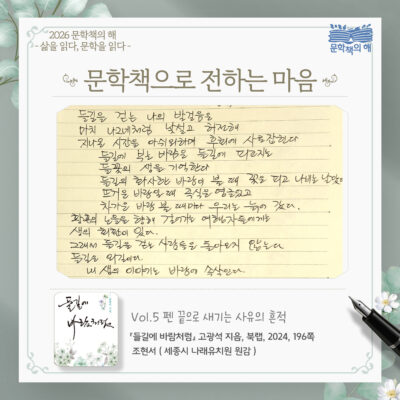 2026 문학책의 해
- 삶을 읽다, 문학을 읽다 -
문학책의 해
문학책으로 전하는 마음
들길을 걷는 나의 발걸음은
마치 나그네처럼 낯설고 허전해
지나온 시간을 아쉬워하며 후회에 사로잡힌다
들길에 부는 바람은 들길에 피고지는
들꽃의 생을 기억한다
들길의 화사한 바람이 불 때 꽃은 피고 나비는 날았다
뜨거운 바람일 때 곡식은 영글었고
차가운 바람 불 때마다 우리는 늙어 갔다.
황혼의 노을을 향해 걸어가는 여행자들에게는
생의 회한이 있다.
그래서 들길을 걷는 사람들은 돌아오지 않는다.
들길은 외길이다
내 생의 이야기는 바람이 속삭인다.
들길에
바람처럼
Vol.5 펜 끝으로 새기는 사유의 흔적
『들길에 바람처럼』 고광석 지음, 북랩, 2024, 196쪽
조현서 ( 세종시 나래유치원 원감 )